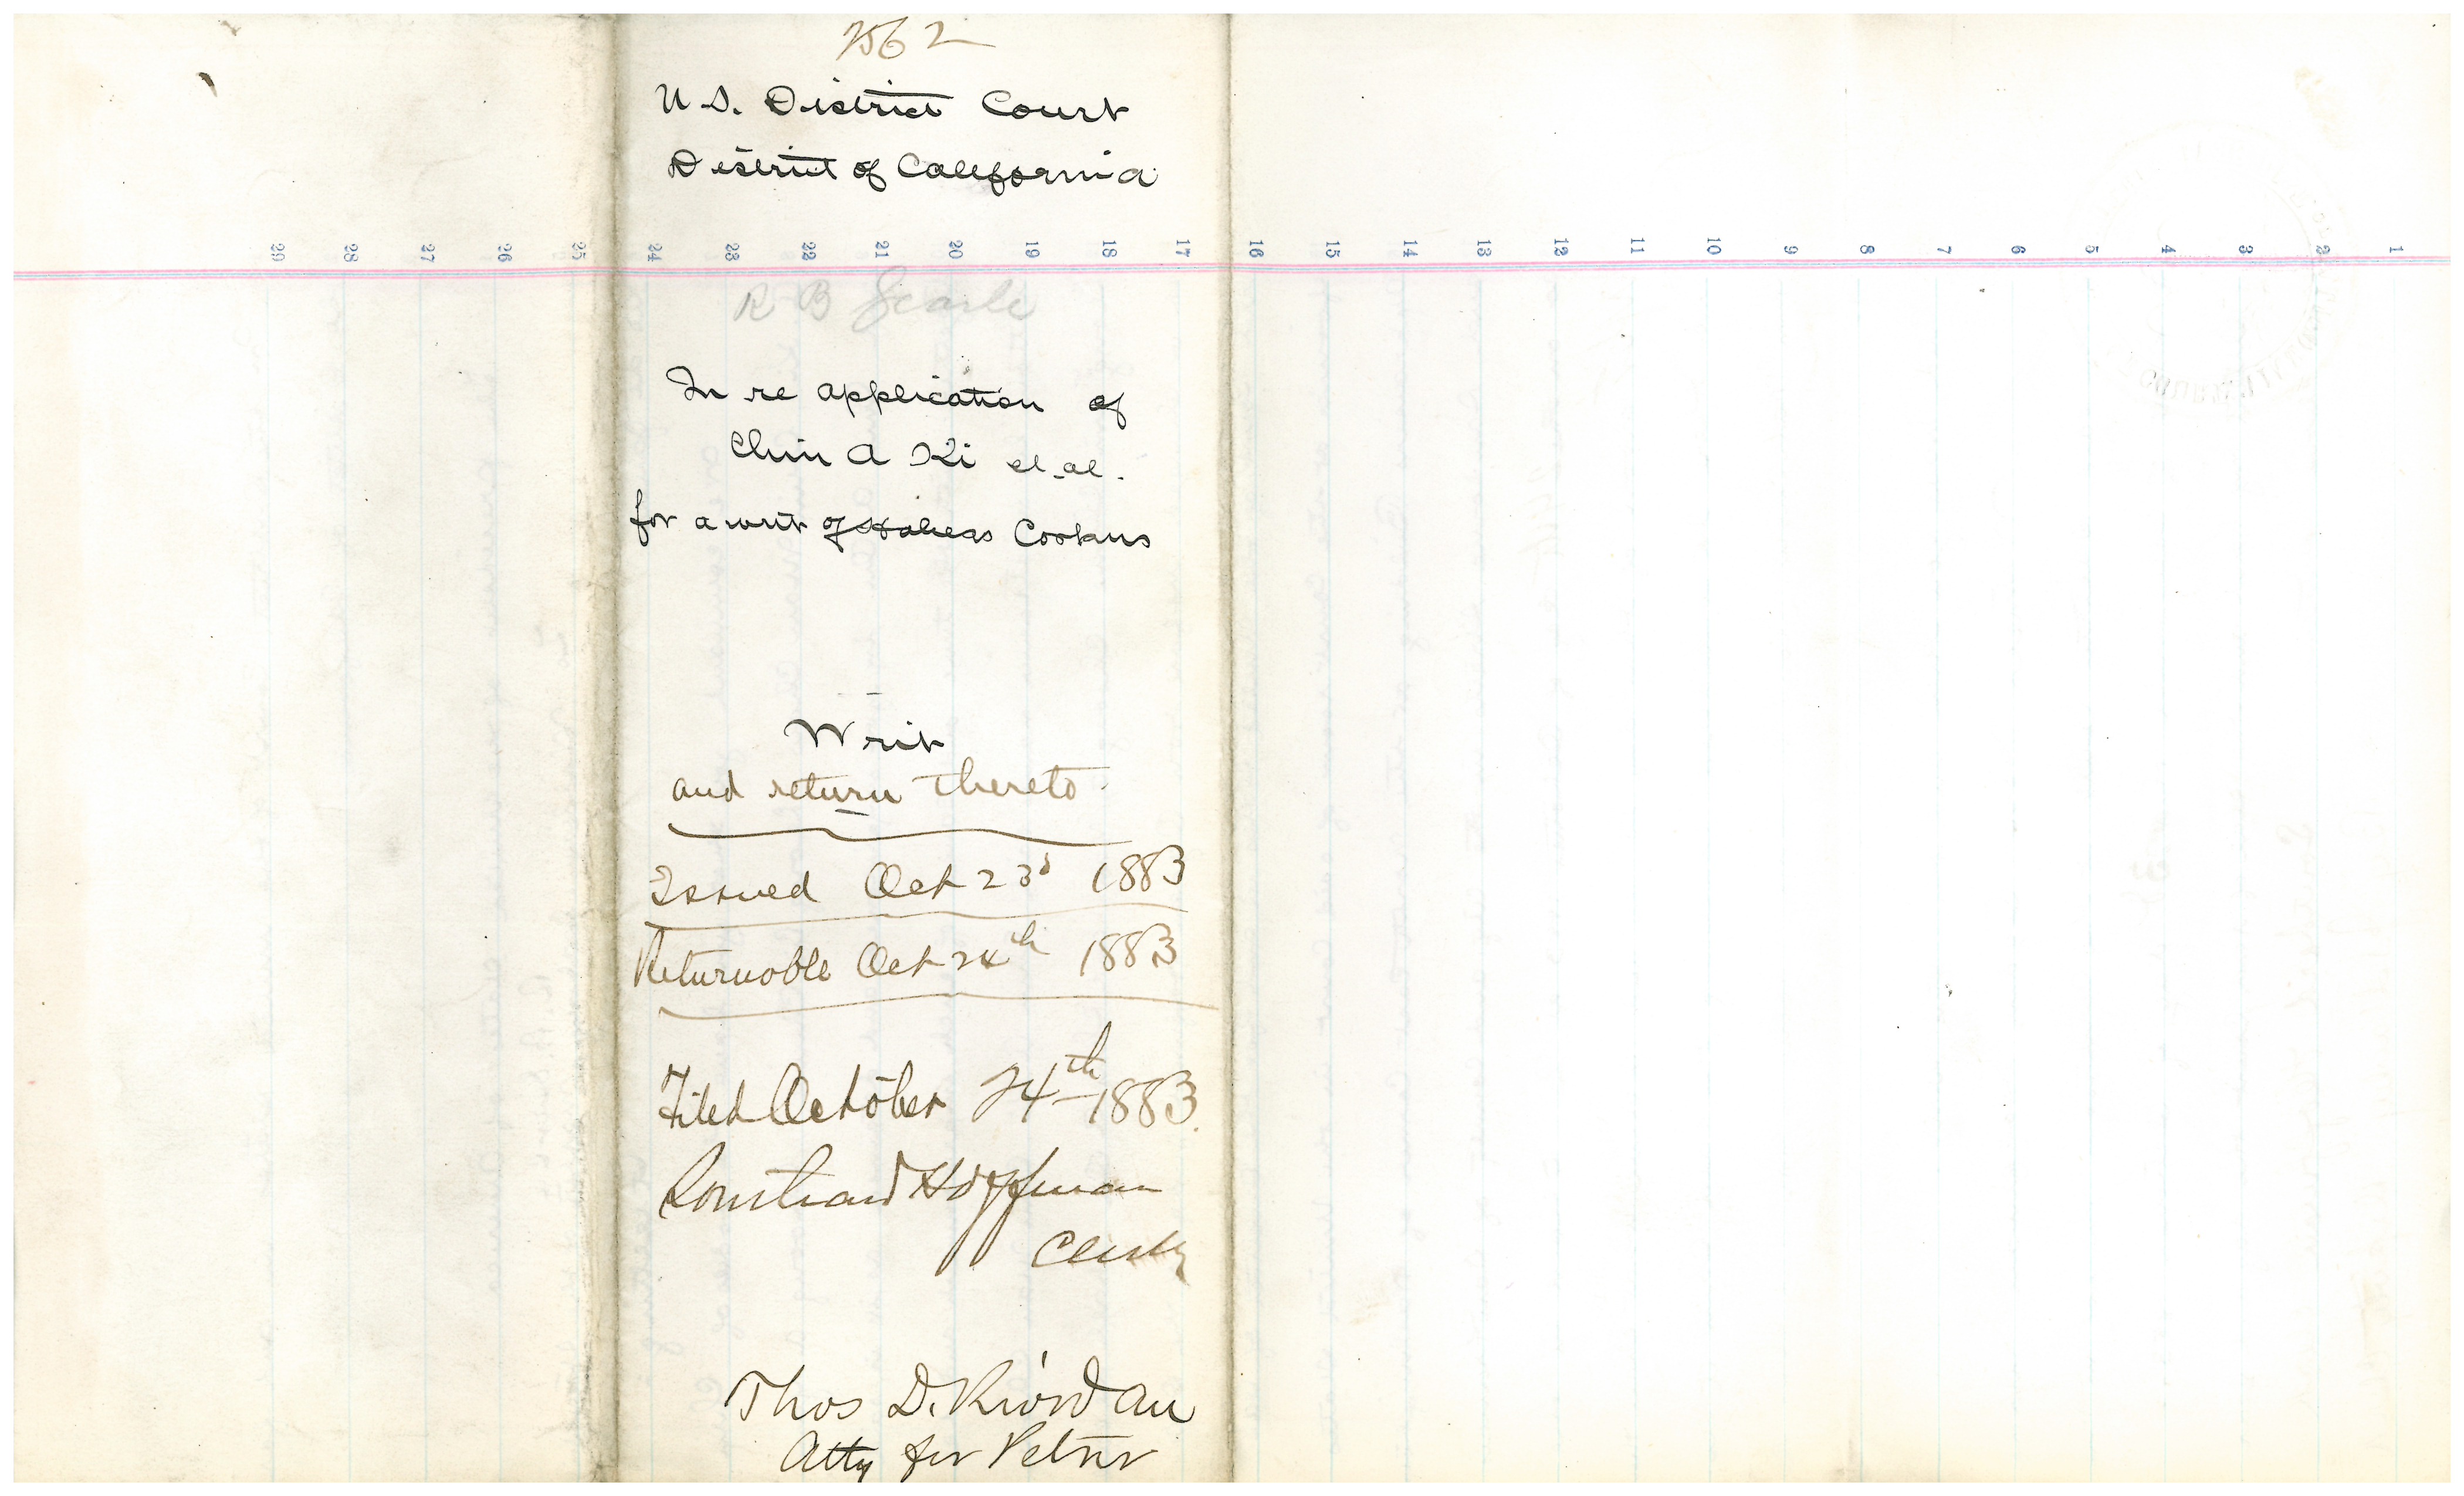 2562
U.S. District Court
District of California
29 28 27 26 25 24 23 22 21 20 19 18 17 16 15 14 13 12 11 10 9 8 7 6 5 4 3 2 1
R B Searle
In re application of
Chin A Ki et al.
for a writ of Habeas Corpus
Writ
and return thereto.
Issued Oct 23d 1883
Returnable Oct 24th 1883
Filed October 24th 1883.
Southard Hoffman
Clerk
Thos D. Riordan
Atty for Petnr